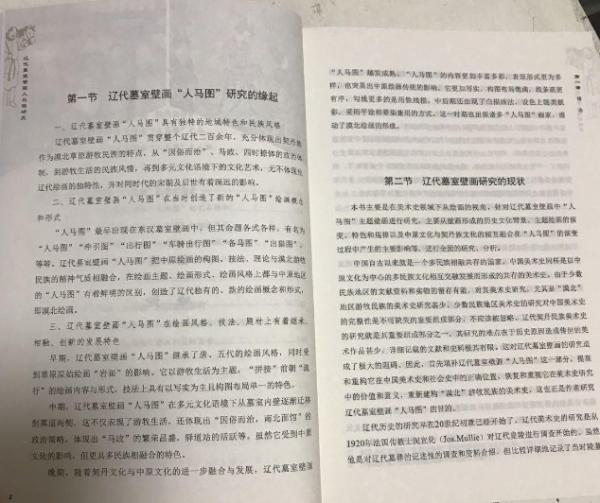 辽代墓室壁画人马图研究
第一节 辽代墓室壁画“人马图”研究的缘起
一、辽代墓室壁画“人马图”具有独特的地域特色和民族风格
辽代墓室壁画“人马图”贯穿整个辽代二百余年，充分体现出契丹
作为漠北草原游牧民族的特点，从“因俗而治”、马政、四时捺钵的政治体
制，到游牧生活的民族风情，再到多元文化语境下的文化艺术，无不体现出
辽代绘画的独特性，并对同时代的宋朝及后世有着深远的影响。
二、辽代墓室壁画“人马图”在当时创造了新的“人马图”绘画模式
和形式
“人马图”最早出现在东汉墓室壁画中，但其命题各式各样，有名为
“人马图”“牵引图”“出行图”“车骑出行图”“备马图”“出猎图”，
等等。辽代墓室壁画“人马图”把中原绘画的构图、技法、理论与漠北游牧
民族的精神气质相融合，在绘画主题、绘画形式、绘画风格上都与中原地区
的“人马图”有着鲜明的区别，创造了辽代独有的、新的绘画概念和形式，
即漠北绘画。
三、辽代墓室壁画“人马图”在绘画风格、技法、题材上有着继承、
相融、创新的发展特色
早期，辽代墓室壁画“人马图”继承了唐、五代的绘画风格，同时受
到草原原始绘画“岩画”的影响，它以游牧生活为主题，“拼接”前朝“流
行”的绘画内容与形式，技法上具有以写实为主且构图布局单一的特色。
中期，辽代墓室壁画“人马图”在多元文化语境下从墓室内壁逐渐迁移
到墓道两侧，这不仅表现了游牧生活，还体现出“因俗而治，南北面官”的
政治策略，体现出“马政”的繁荣昌盛，驿道站的活跃等。虽然它受到中原
文化的影响，但更具多民族相融合的特色。
晚期，随着契丹文化与中原文化的进一步融合与发展，辽代墓室壁画
2
“人马图”越发成熟。“人马图”的内容更加丰富多彩，表现形式更为多
样，也突显出中原绘画传统的影响。它更加写实，构图布局饱满，线条疏密
有序，勾线更多的是用铁线描，中后期还出现了白描画法，设色上既类赋
彩，采用平涂和晕染兼用的方式。这一时期也出现诸多“人马图”画家，推动
了漠北绘画的形成。
第二节 辽代墓室壁画研究的现状
本书主要是在美术史领域下从绘画的视角，针对辽代墓室壁画中“人
马图”主题壁画进行研究，主要从壁画形成的历史文化背景、主题绘画的演
变、特色和规律以及中原文化与契丹族文化的相互融合在“人马图”的演变
过程中产生的主要影响等，进行全面的研究、分析。
中国自古以来就是一个多民族相融共存的国家，中国美术史同样是以中
原文化为中心的多民族文化相互交融发展而形成的共存的美术史。由于少数
民族地区的文献资料和实物的留存有差，对其美术史研究，尤其是“漠北”
地区游牧民族的美术史研究甚少。少数民族地区美术史的研究对中国美术史
的完整性是不可缺失的重要组成部分，不应该被忽略。辽代契丹民族美术史
的研究就是其重要组成部分之一，其研究的难点在于历史原因造成传世的美
术作品甚少，详细记载的文献和史料极其有限，这对辽代墓室壁画的研究造
成了极大的阻碍。因此，首先填补辽代墓室壁画“人马图”这一部分，提高
和重构它在中国美术史和社会史中的正确位置，恢复和重现它在美术史研究
中的价值和意义，重新建构“漠北”游牧民族的美术史，这也正是作者研究
辽代墓室壁画“人马图”的目的。
辽代历史的研究早在20世纪初就已经开始了，辽代美术史的研究是从
1920年法国传教士闵宣化（Jos.Mullie）对辽代皇陵进行调查开始的。虽然
他是对辽代墓葬的记述性的调查和资料介绍，但比较详细地记录了当时对陵